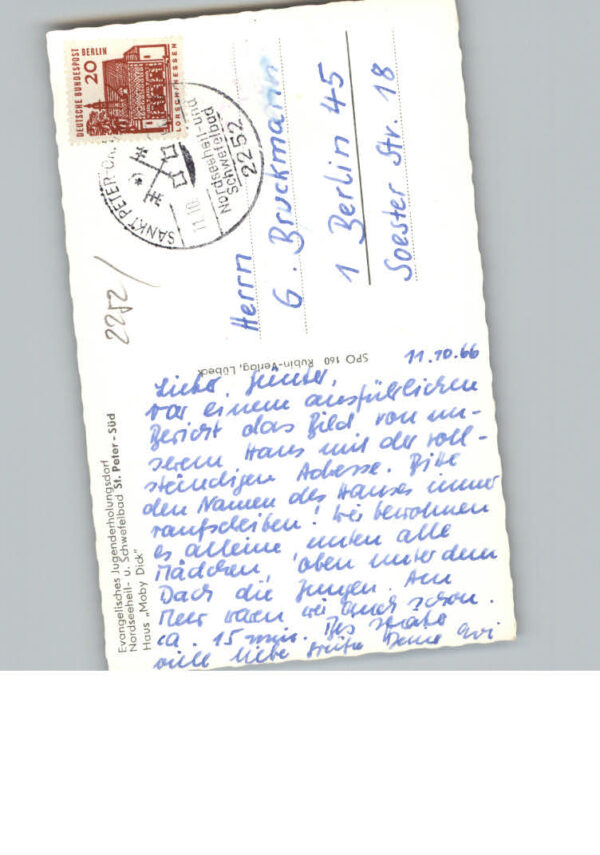 Evangelisches Jugenderholungsdorf
Nordseeheil- u. Schwefelbad St. Peter-Süd
Haus „Moby Dick"
2252/
SPO 160 Rubin-Verlag, Lübeck
11.10.66
Lieber Günter,
vor einem ausführlichen
Bericht das Bild von un-
serem Haus mit der voll-
ständigen Adresse. Bitte
den Namen des Hauses immer
raufschreiben! Wir bewohnen
es alleine, unten alle
Mädchen, oben unter dem
Dach die Jungen. Am
Meer waren wir auch schon.
ca. 15 min. Bis
viele liebe Grüße Deine
DEUTSCHE BUNDESPOST BERLIN
20
LORSCH/HESSEN
SANKT PETER-OR
11.10.
Nordseeheil-und
Schwefelbad
2252
Herrn
G. Bruckmann
1 Berlin 45
Soester Str. 18